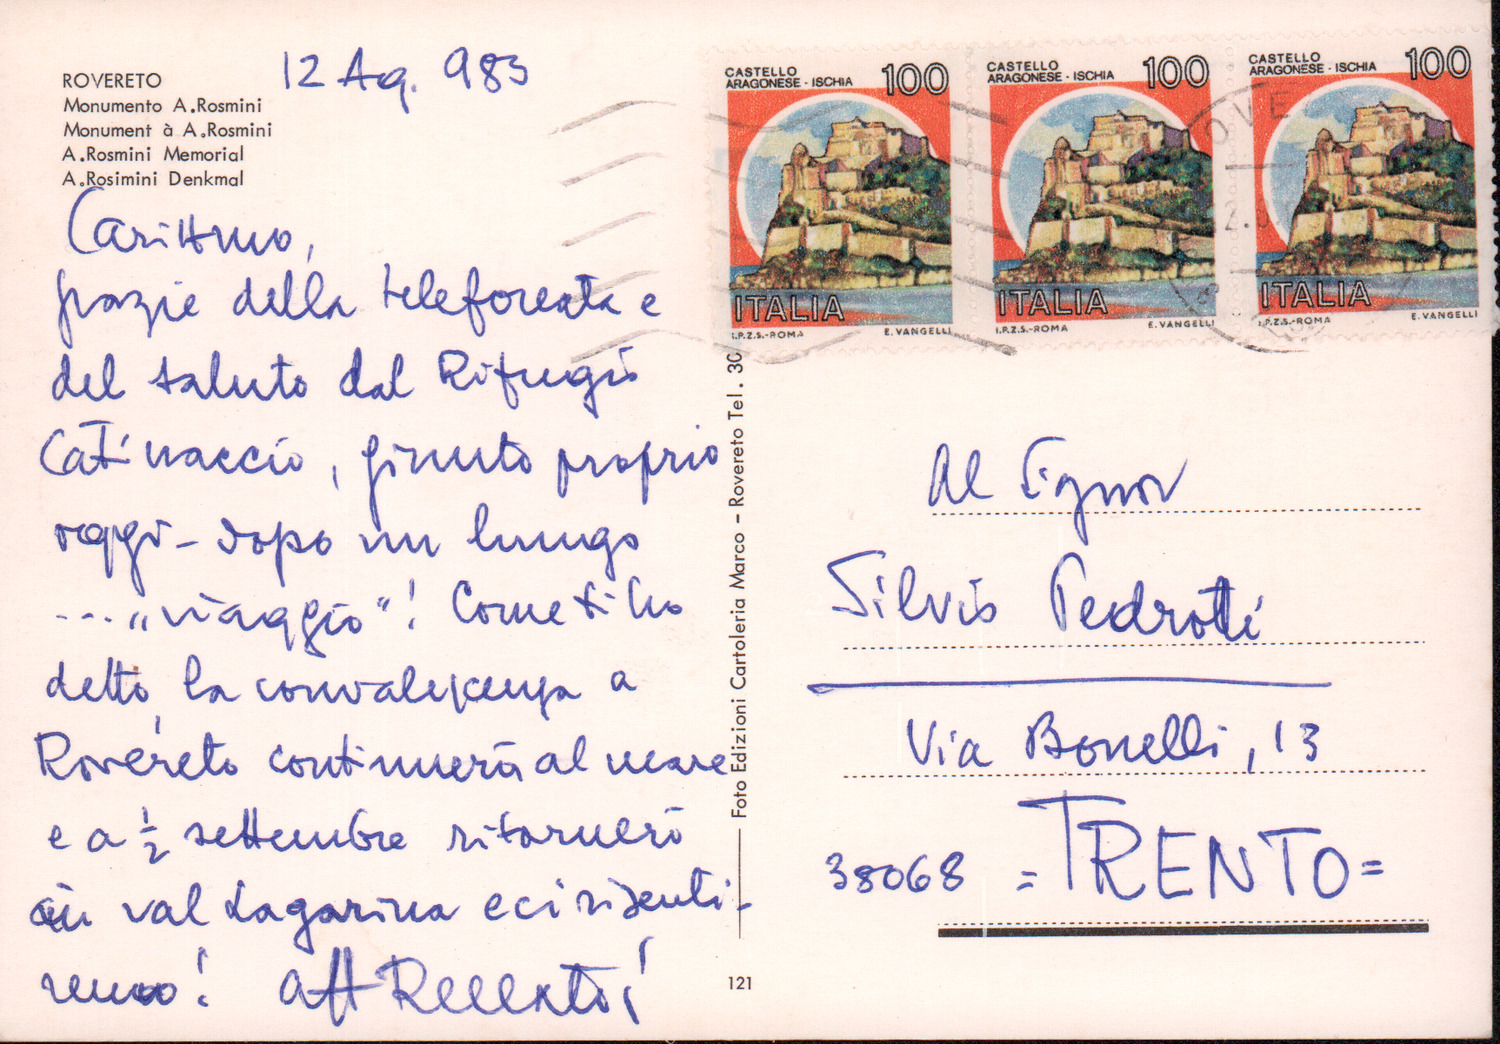 ROVERETO
Monumento A.Rosmini
Monument à A.Rosmini
A.Rosmini Memorial
A.Rosimini Denkmal
12 Ag. 983
Carissimo,
grazie della telefonata e
del saluto dal Rifugio
Catinaccio, giunto proprio
oggi - dopo un lungo
... "viaggio"! Come ti ho
detto, la convalescenza a
Rovereto continuerà al mare
e a ½ settembre ritornerò
in val Lagarina e ci risenti-
remo! Aff
CASTELLO
ARAGONESE - ISCHIA 100
ITALIA
I.P.Z.S.-ROMA E. VANGELLI
CASTELLO
ARAGONESE - ISCHIA 100
ITALIA
I.P.Z.S.-ROMA E. VANGELLI
CASTELLO
ARAGONESE - ISCHIA 100
ITALIA
I.P.Z.S.-ROMA E. VANGELLI
OVE
Foto Edizioni Cartoleria Marco - Rovereto Tel. 30
121
Al Signor
Silvio Pedrotti
Via Bonelli, 13
38068 = TRENTO =